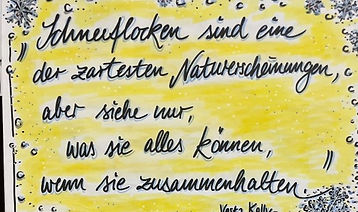 „Schneeflocken sind eine
der zartesten Naturerscheinungen,
aber siehe nur,
was sie alles können,
wenn sie zusammenhalten.”